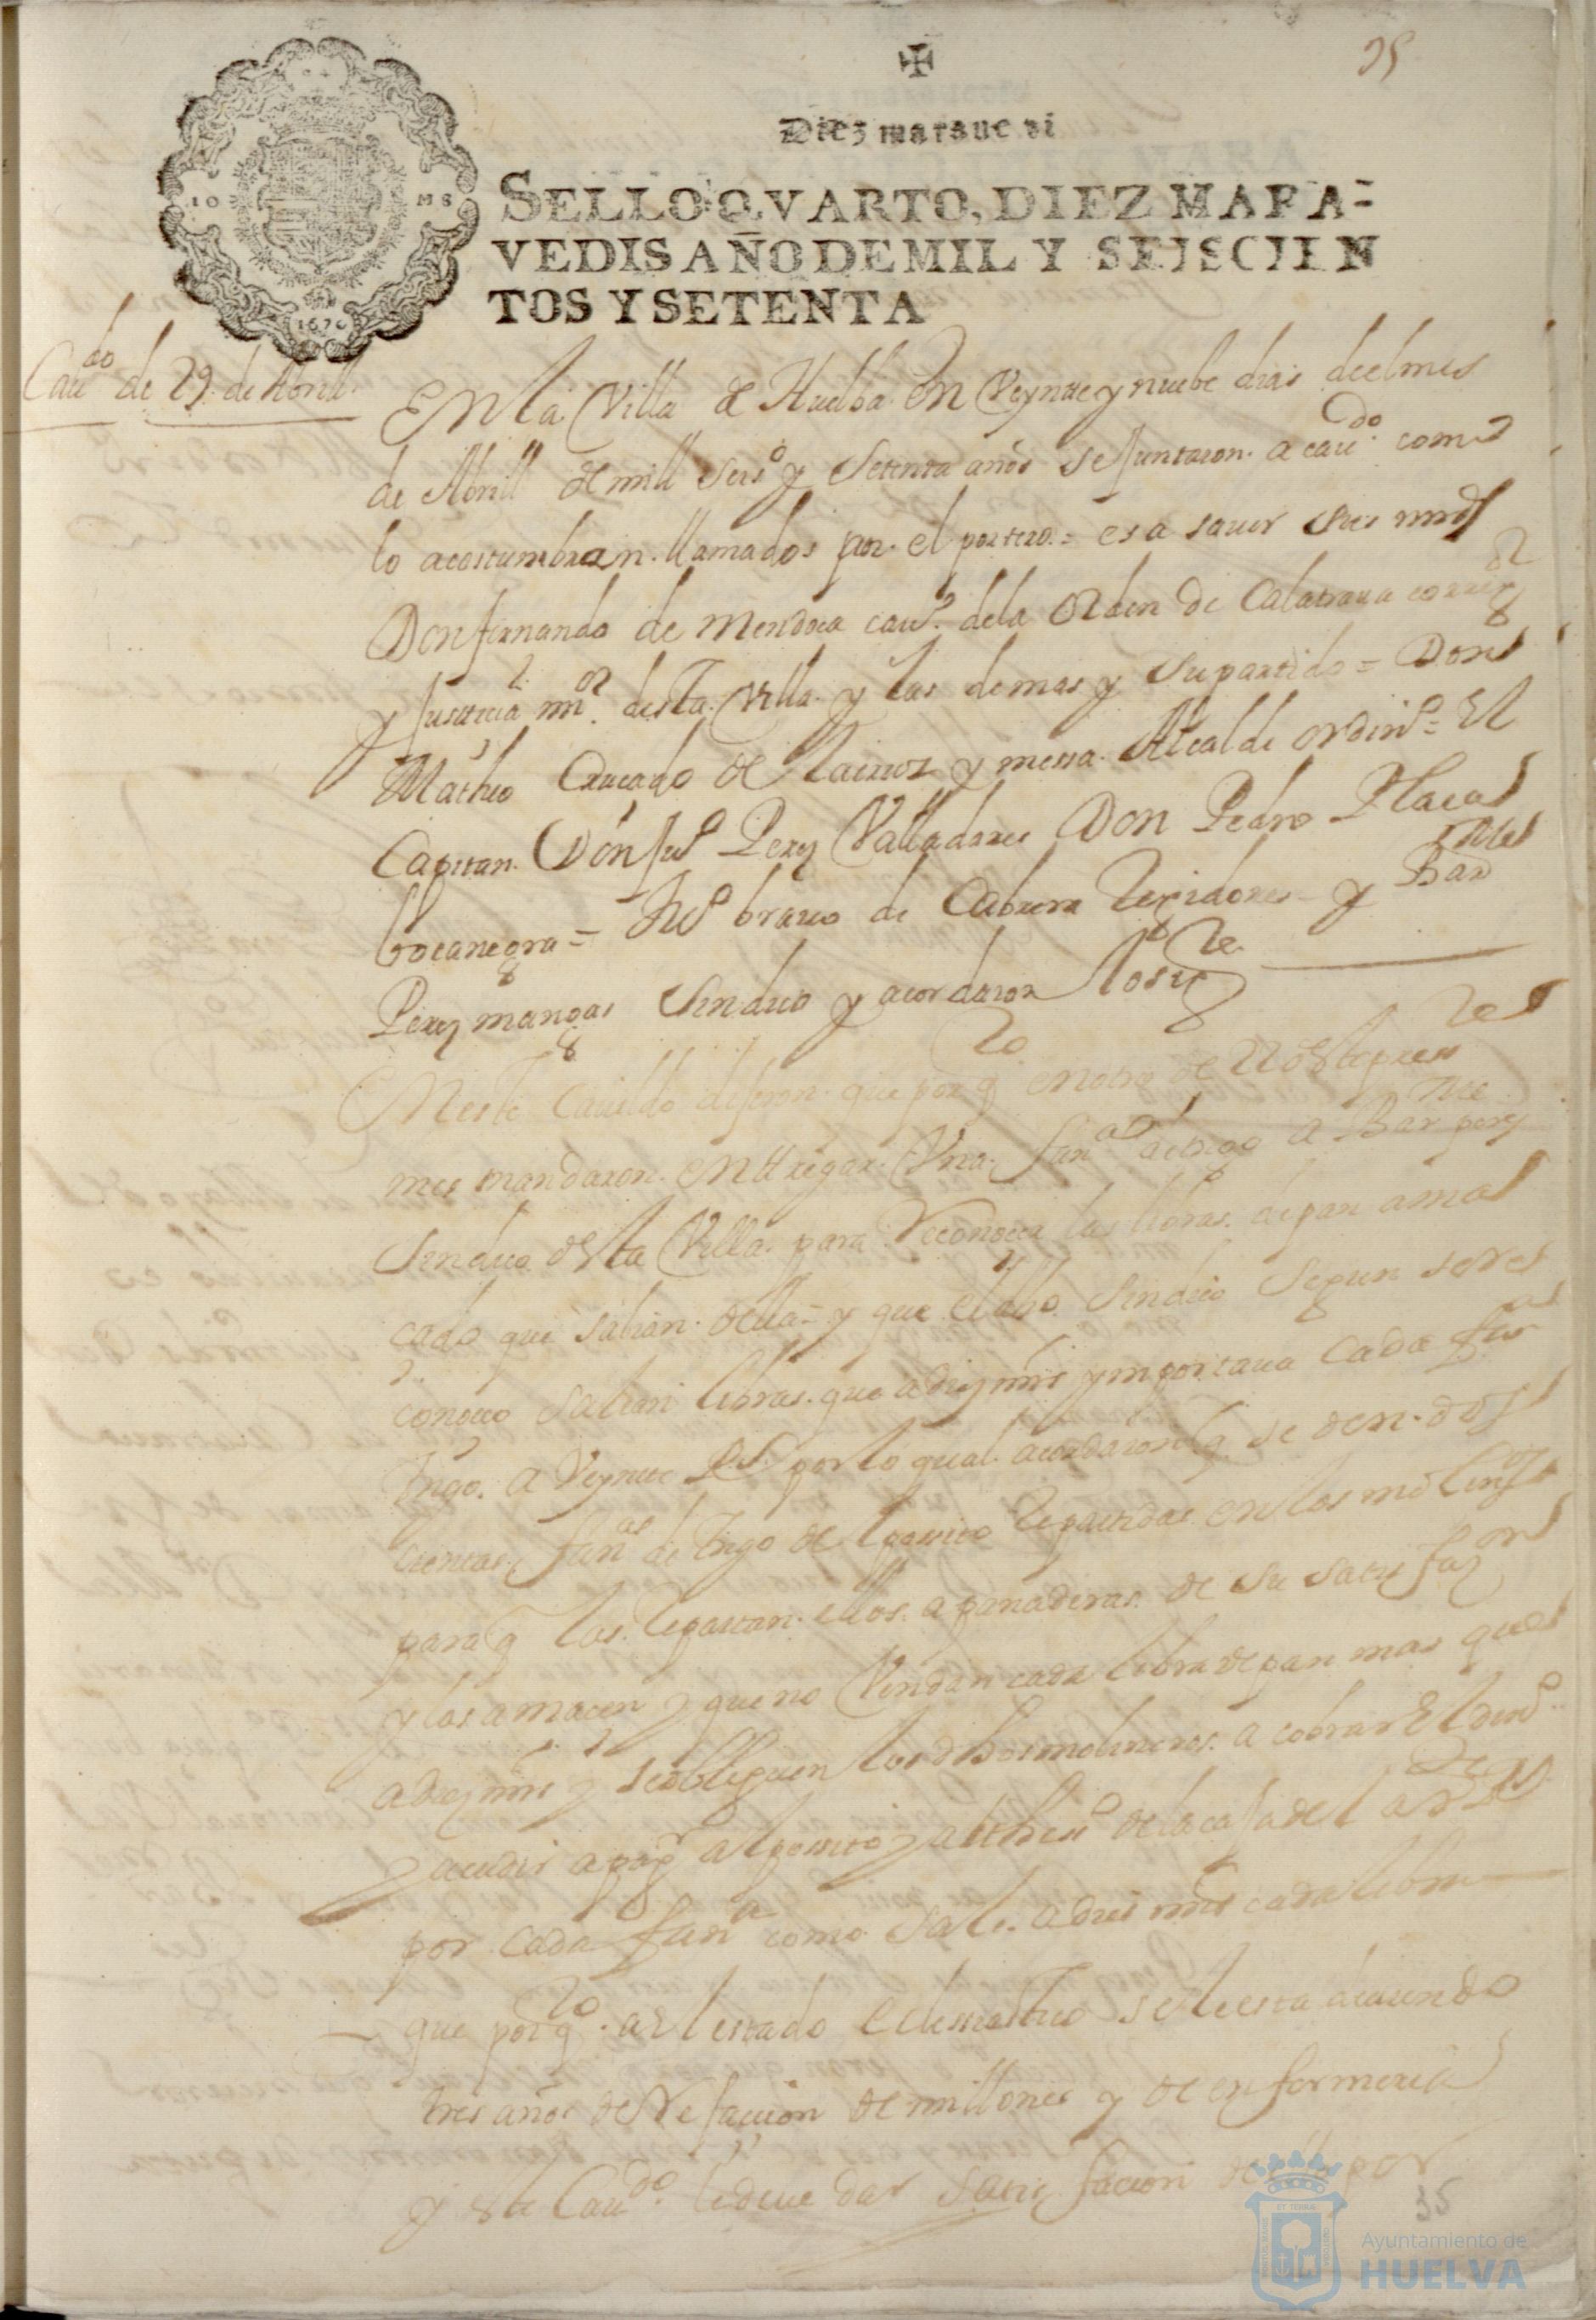 35
Diez maraue di
SELLO QVARTO, DIEZ MARA-
VEDIS AÑO DE MIL Y SEISCIEN
TOS Y SETENTA
1670
Caudo de 29 de Abrill
En la Villa de Huelba en Veynte y nuebe dias deel mes
de Abrill de mill seiso y setenta años se juntaron a caudo como
lo acostumbran llamados por el portero = es a sauer sus mrds
Don fernando de Mendoca cauo de la orden de Calatraua correxor
y Justicia mor desta Villa y las demas y su partido = Don
Matheo Quecado de y messa Alcalde ordino = El
Capitan Don Juo Perez Valladares Don Pedro Placa
bocanegra = Juo brauo de Cabrera Rexidores y Barme
Perez mangas Sindico y acordaron lo sigte
En este Cauildo dijeron que por qto en otro de deste presente
mes mandaron entregar Vna fana de trigo a Barme perez
Sindico desta Villa para Reconocer las libras de pan ama
cado que salian della = y que el dho Sindico segun se re
conocio salian libras que a diez mrs ymportaua cada fana
trigo a Veynte Rs por lo qual acordaron q se den dos
cientas fanas de trigo del posito Repartidas en los molinos
para q los Repartan ellos a panaderas de su satisfazon
y los amacen y que no Vendan cada libra de pan mas que
a diez mrs y se obliguen los dhos molineros a cobrar El dino
y acudir a pagr al posito y al theso de la caja del
por cada fana como sale a dies mrs cada libra
que por qto a el estado eclesiastico se le esta deuiendo
tres años de Refaccion de millones y de enfermeria
y este Caudo le deue dar satisfacion della por
35
Ayuntamiento de
HUELVA